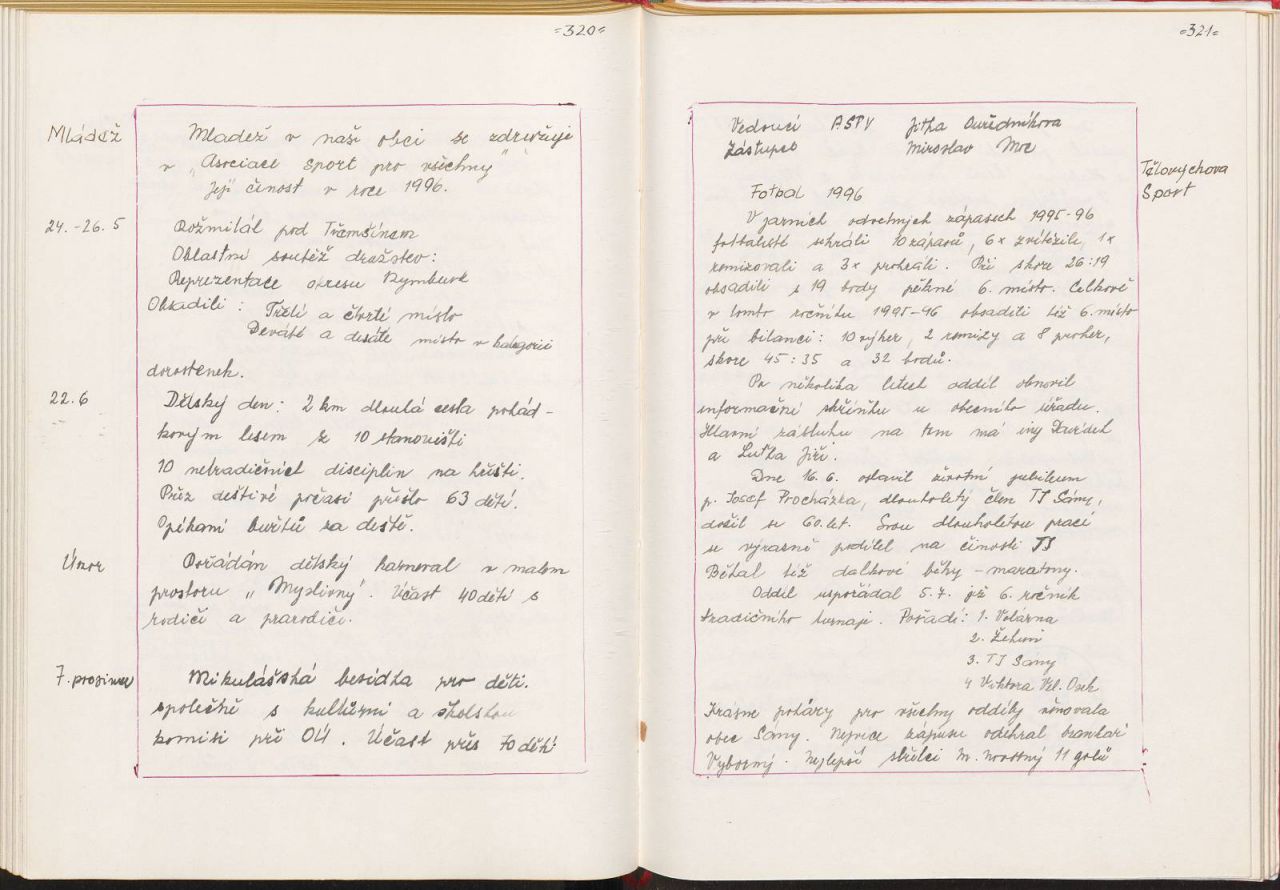 =320=
Mládež
Mladež v naši obci se združuje
v „Asociace sport pro všechny"
Její činost v roce 1996.
24.-26.5
Rožmitál pod Třemšínem
Oblastní soutěž družstev:
Reprezentace okresu Nymburk
Obsadili: Třetí a čtvrté místo
Deváté a desáté místo v kategorii
dorostenek.
22.6
Dětský den: 2 km dlouhá cesta pohád-
kovým lesem se 10 stanovišti
10 netradičních disciplin na hřišti.
Přez deštivé počasí přišlo 63 dětí.
Opékaní buřtů za deště.
Únor
Pořádán dětský karneval v malem
prostoru „Myslivny". Učast 40 dětí s
rodiči a prarodiči.
7. prosinec
Mikulášská besídka pro děti.
společně s kulturní a školskou
komisi při OÚ. Účast přes 70 dětí
=321=
Vedoucí ASPV Jitka Ouředníkova
Zástupce Miroslav Mrc
Tělovýchova
Sport
Fotbal 1996
V jarních odvetných zápasech 1995-96
fotbalisté sehráli 10 zápasů, 6x zvítězili, 1x
remizovali a 3x prohráli. Při skore 26:19
obsadili s 19 body pěkné 6. místo. Celkově
v tomto ročníku 1995-96 obsadili též 6. místo
při bilanci: 10 výher, 2 remizy a 8 proher,
skore 45:35 a 32 bodů.
Po několika letech oddíl obnovil
informační skříňku u obecního úřadu.
Hlavní zásluhu na tom má ing
a Luťka Jiří.
Dne 16.6. oslavil životní jubileum
p. Josef Procházka, dlouholetý člen TJ Sány,
dožil se 60. let. Svou dlouholetou prací
se výrazně podílel na činosti TJ
Běhal též dalkové běhy - maratony.
Oddíl uspořádal 5.7. již 6. ročník
tradičního turnaje. Pořadí: 1. Volárna
2. Žehuň
3. TJ Sány
4 Viktora Vel. Osek
Krásne poháry pro všechny oddíly věnovala
obec Sány. Nejvíce zápasu odehral brankář
Vyborný. Nejlepší střelci M. Novotný 11 golů